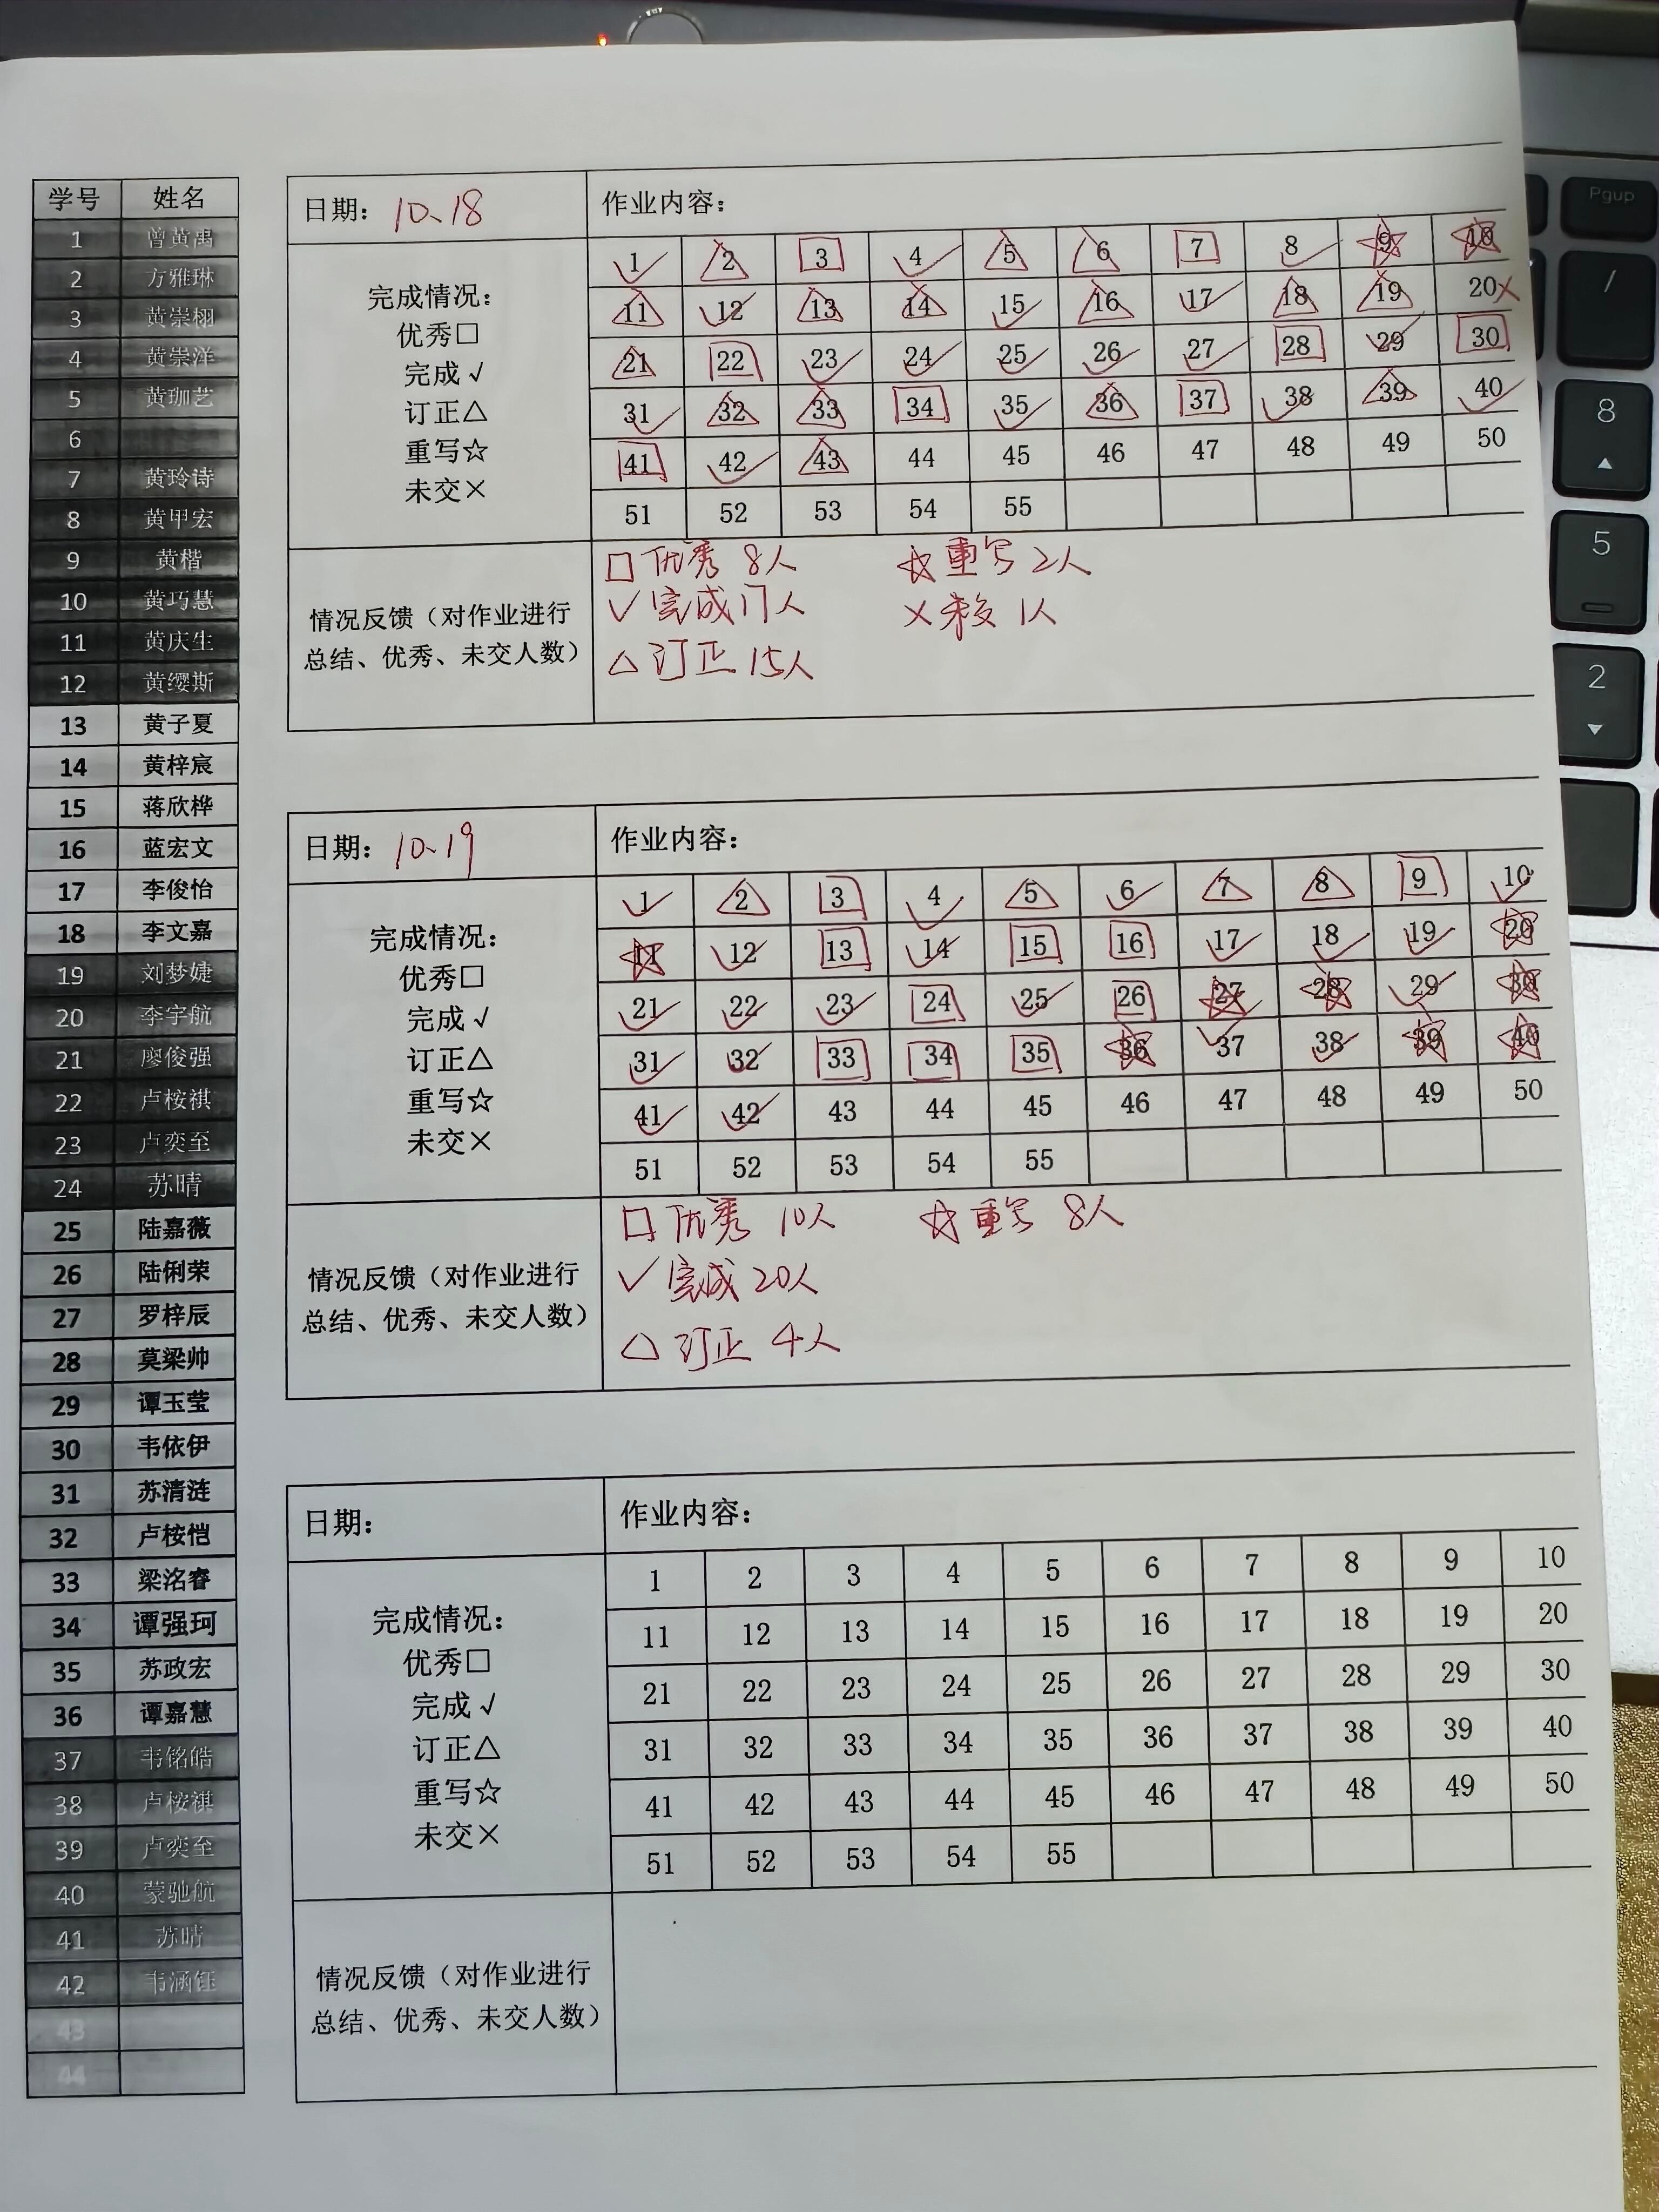 学号 姓名
1 曾黄禹
2 方雅琳
3 黄崇栩
4 黄崇洋
5 黄珈艺
6
7 黄玲诗
8 黄甲宏
9 黄楷
10 黄巧慧
11 黄庆生
12 黄缨斯
13 黄子夏
14 黄梓宸
15 蒋欣桦
16 蓝宏文
17 李俊怡
18 李文嘉
19 刘梦婕
20 李宇航
21 廖俊强
22 卢桉祺
23 卢奕至
24 苏晴
25 陆嘉薇
26 陆俐荣
27 罗梓辰
28 莫梁帅
29 谭玉莹
30 韦依伊
31 苏清涟
32 卢桉恺
33 梁洺睿
34 谭强珂
35 苏政宏
36 谭嘉慧
37 韦铭皓
38 卢桉祺
39 卢奕至
40 蒙驰航
41 苏晴
42 韦涵钰
43
44
日期： 10、18 作业内容：
完成情况：
优秀□
完成√
订正△
重写☆
未交×
1 2 3 4 5 6 7 8 9 10
11 12 13 14 15 16 17 18 19 20×
21 22 23 24 25 26 27 28 29 30
31 32 33 34 35 36 37 38 39 40
41 42 43 44 45 46 47 48 49 50
51 52 53 54 55
情况反馈（对作业进行
总结、优秀、未交人数）
□ 优秀 8人 ☆重写 2人
√ 完成 17人 ×未交 1人
△ 订正 15人
日期： 10、19 作业内容：
完成情况：
优秀□
完成√
订正△
重写☆
未交×
1 2 3 4 5 6 7 8 9 10
11 12 13 14 15 16 17 18 19 20
21 22 23 24 25 26 27 28 29 30
31 32 33 34 35 36 37 38 39 40
41 42 43 44 45 46 47 48 49 50
51 52 53 54 55
情况反馈（对作业进行
总结、优秀、未交人数）
□ 优秀 10人 ☆重写 8人
√ 完成 20人
△ 订正 4人
日期： 作业内容：
完成情况：
优秀□
完成√
订正△
重写☆
未交×
1 2 3 4 5 6 7 8 9 10
11 12 13 14 15 16 17 18 19 20
21 22 23 24 25 26 27 28 29 30
31 32 33 34 35 36 37 38 39 40
41 42 43 44 45 46 47 48 49 50
51 52 53 54 55
情况反馈（对作业进行
总结、优秀、未交人数）
Pgup
/
8
5
2